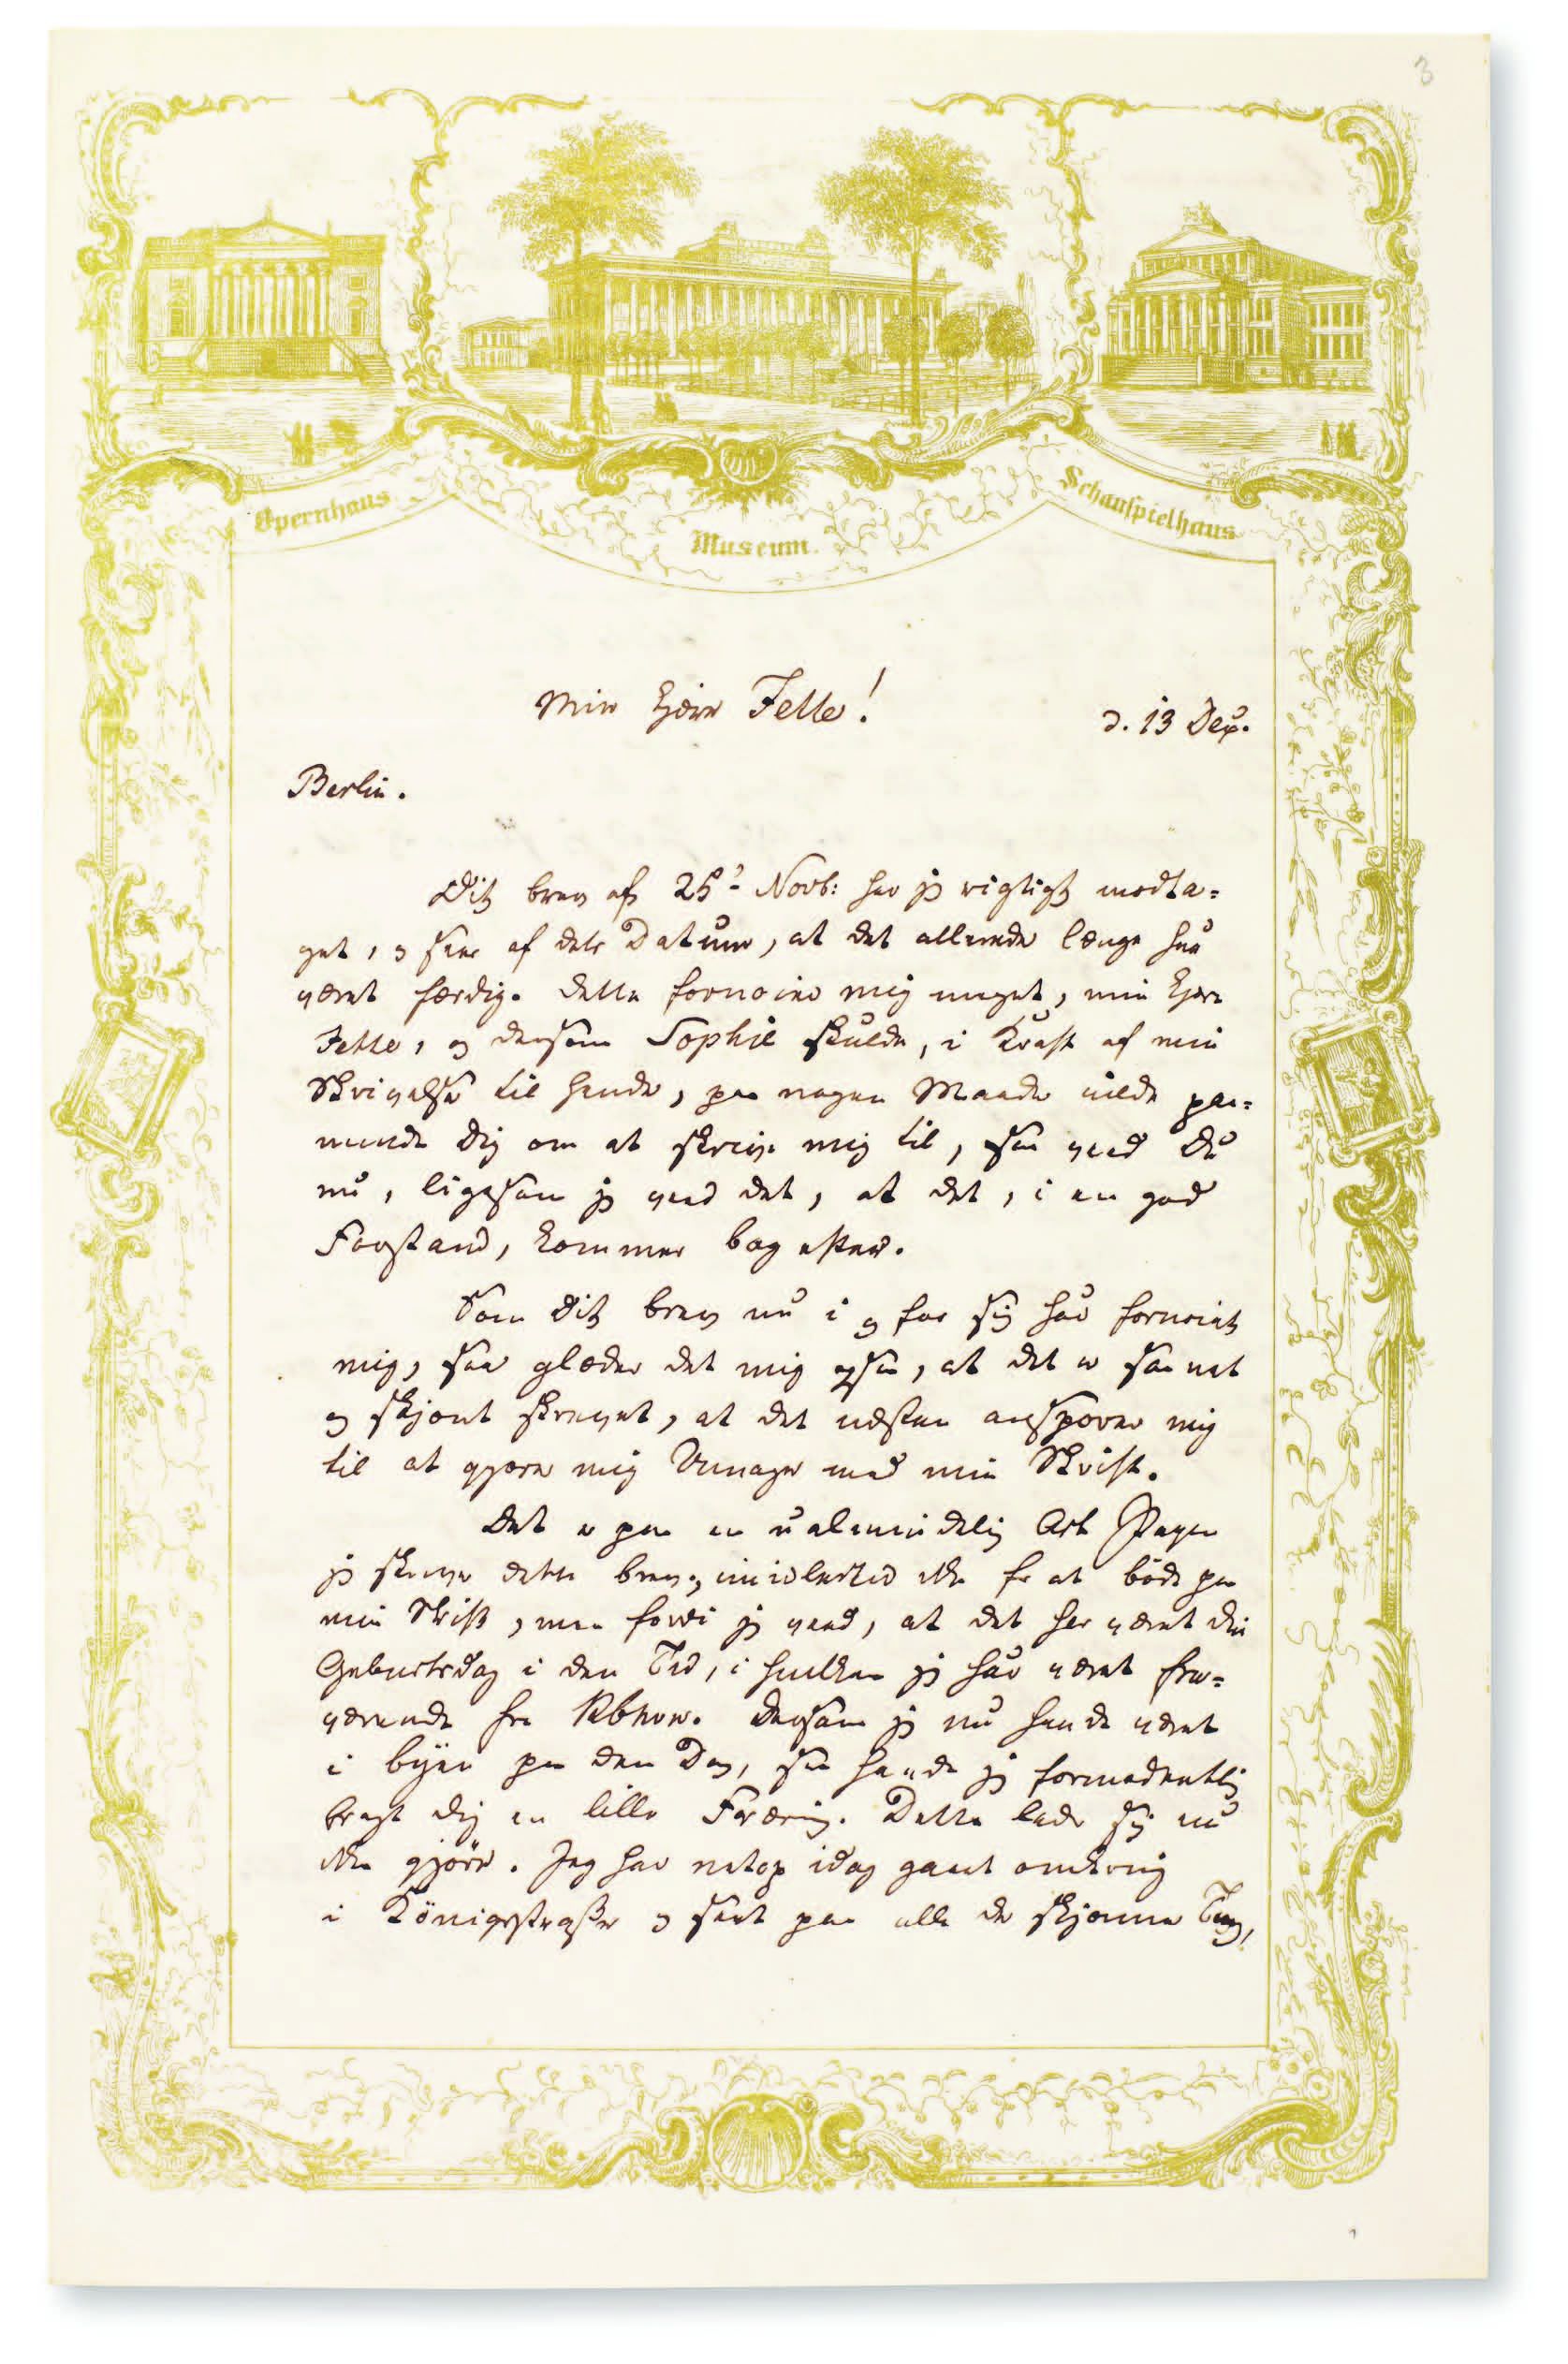 3
Opernhaus
Museum.
Schauspielhaus
Min kjære Jette!
d. 13 Dec.
Berlin.
Dit Brev af 25d Novb: har jeg rigtigt modta=
get, og seer af dets Datum, at det allerede længe har
været færdig. Dette fornøier mig meget, min kjære
Jette, og dersom Sophie skulde, i Kraft af min
Skrivelse til hende, paa nogen Maade ville paa=
minde Dig om at skrive mig til, saa veed Du
nu, ligesom jeg veed det, at det, i en god
Forstand, kommer bag efter.
Som Dit Brev nu i og for sig har fornøiet
mig, saa glæder det mig ogsaa, at det er saa net
og skjønt skrevet, at det næsten ansporer mig
til at gjøre mig Umage med min Skrift.
Det er paa en ualmindelig Art Papir
jeg skriver dette Brev, imidlertid ikke for at bøde paa
min Skrift, men fordi jeg veed, at det har været Din
Geburtsdag i den Tid, i hvilken jeg har været fra=
værende fra Kbhvn. Dersom jeg nu havde været
i Byen paa den Dag, saa havde jeg formodentlig
bragt Dig en lille Foræring. Dette lader sig nu
ikke gjøre. Jeg har netop idag gaaet omkring
i Königsstraße og seet paa alle de skjønne Ting,